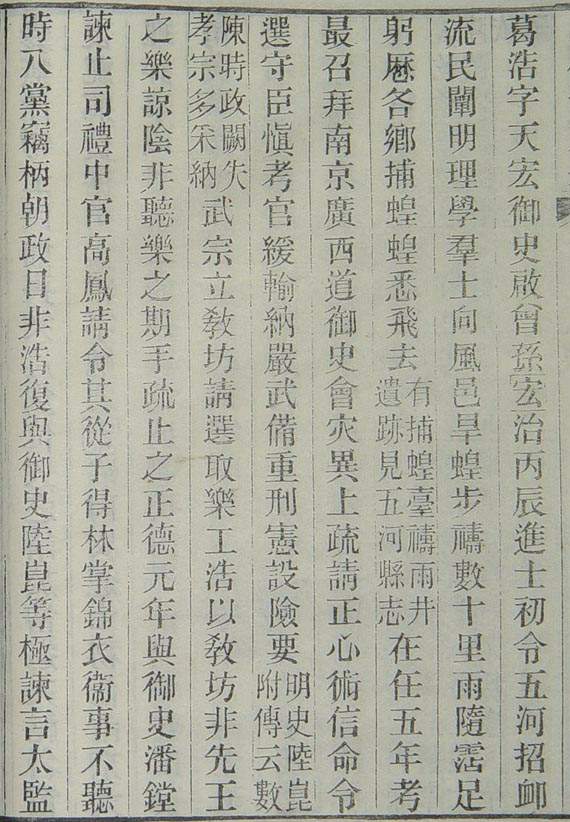 葛浩字天宏御史啟曾孫宏治丙辰進士初令五河招卹
流民闡明理學羣士向風邑旱蝗步禱數十里雨隨霑足
躬厯各鄉捕蝗蝗悉飛去有捕蝗臺禱雨井遺跡見五河縣志在任五年考
最召拜南京廣西道御史會灾異上疏請正心術信命令
選守臣愼考官緩輸納嚴武備重刑憲設險要明史陸崑附傳云數
陳時政闕失孝宗多釆納武宗立敎坊請選取樂工浩以敎坊非先王
之樂諒陰非聽樂之期手疏止之正德元年與御史潘鏜
諫止司禮中官高鳳請令其從子得林掌錦衣衞事不聽
時八黨竊柄朝政日非浩復與御史陸崑等極諫言太監